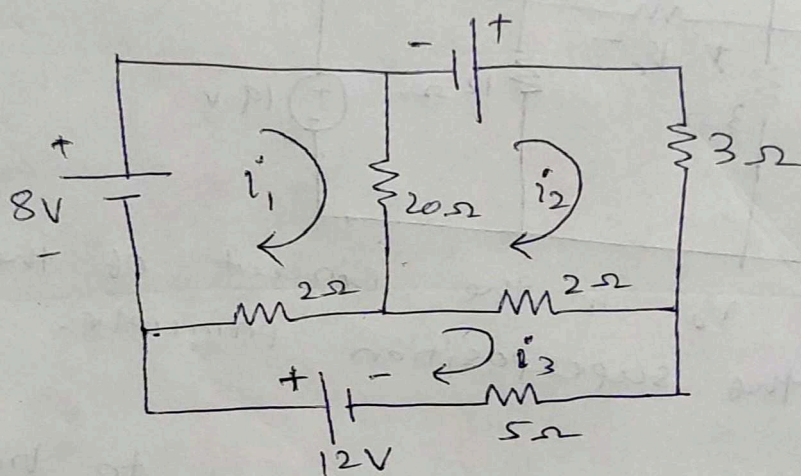 - +
+
8V
-
i₁
20Ω
i₂
3Ω
2Ω
2Ω
i₃
+ -
12V
5Ω